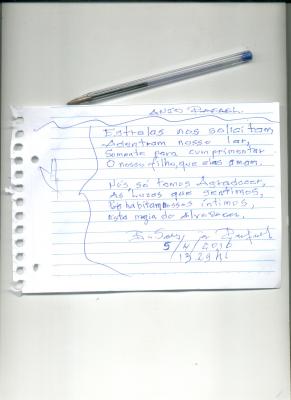 ANJO RAFAEL
Estrelas nos solicitam,
Adentram nosso lar,
Somente para cumprimentar
O nosso filho, que elas amam.
Nós só temos Agradecer,
As Luzes que sentimos,
habitam nossos íntimos,
Esta magia do Alvorecer.
5/4/2016
13:29 hs